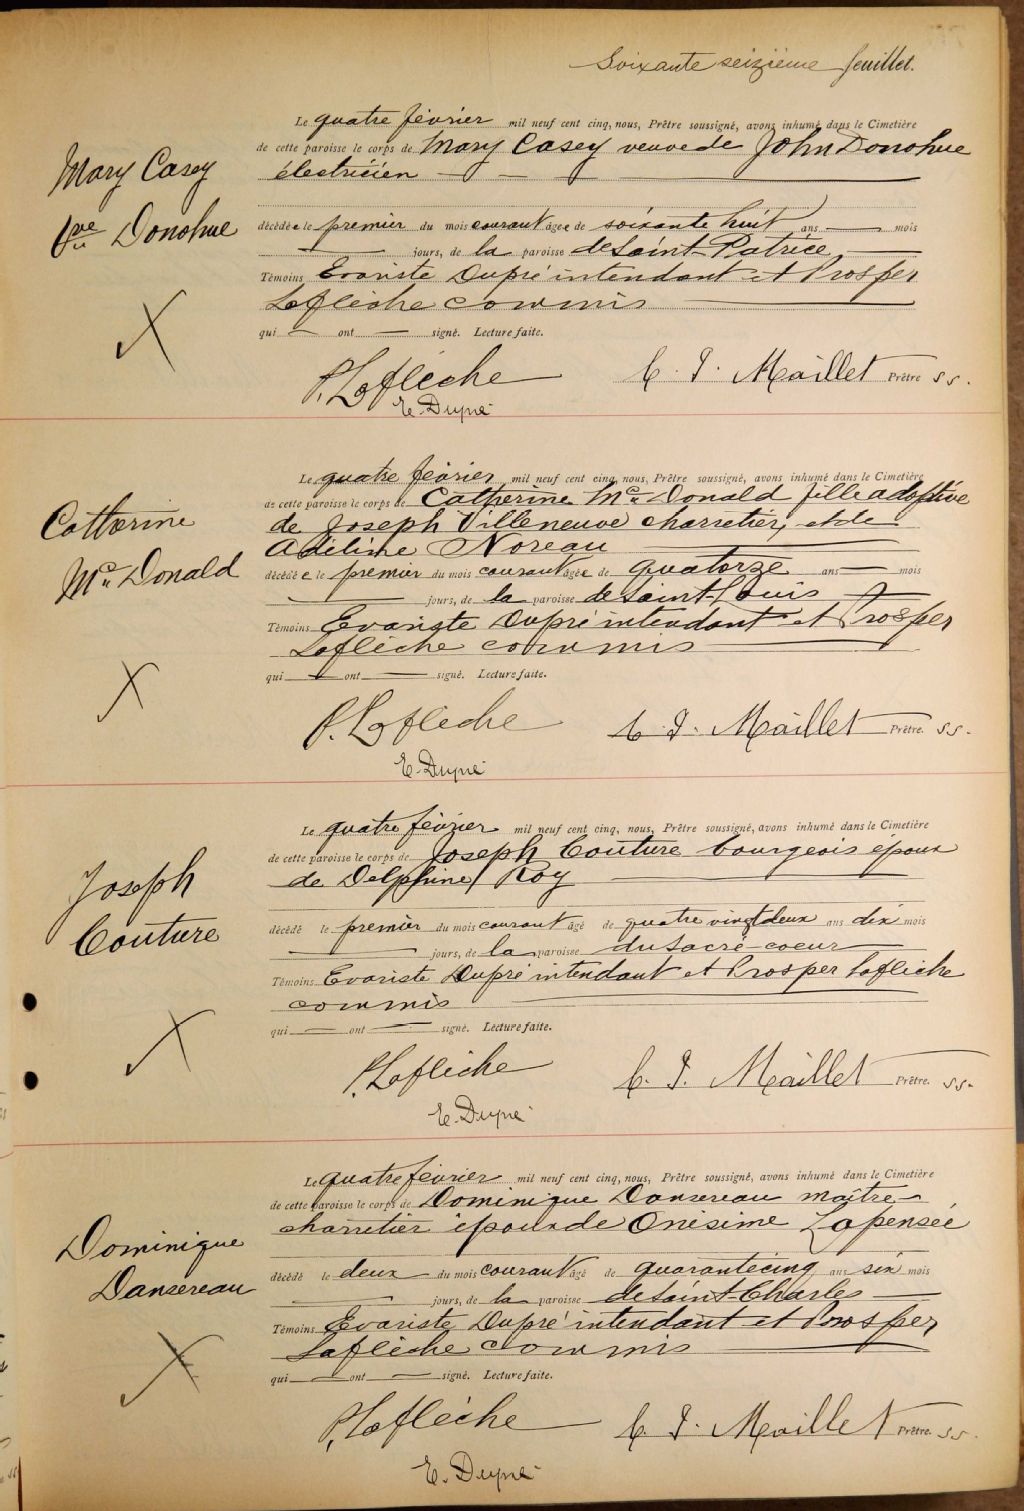 Soixante seizième feuillet.
Le quatre février mil neuf cent cinq, nous, Prêtre soussigné, avons inhumé dans le Cimetière
de cette paroisse le corps de Mary Casey veuve de John Donohue
électricien
Mary Casey
Vve Donohue
décédée le premier du mois courant âgée de soixante huit ans — mois
— jours, de la paroisse de Saint-Patrice
Témoins Evariste Dupré intendant et Prosper
Laflèche commis
qui — ont — signé. Lecture faite.
P. Laflèche
E. Dupré
Maillet Prêtre s.s.
Le quatre février mil neuf cent cinq, nous, Prêtre soussigné, avons inhumé dans le Cimetière
de cette paroisse le corps de Catherine Mc Donald fille adoptive
de Joseph Villeneuve charretier, et de
Adéline Noreau
Catherine
Mc Donald
décédée le premier du mois courant âgée de quatorze ans — mois
— jours, de la paroisse de Saint-Louis
Témoins Evariste Dupré intendant et Prosper
Laflèche commis
qui — ont — signé. Lecture faite.
P. Laflèche
E. Dupré
Maillet Prêtre. s.s.
Le quatre février mil neuf cent cinq, nous, Prêtre soussigné, avons inhumé dans le Cimetière
de cette paroisse le corps de Joseph Couture bourgeois époux
de Delphine Roy
Joseph
Couture
décédé le premier du mois courant âgé de quatre vingt deux ans dix mois
— jours, de la paroisse du Sacré-coeur
Témoins Evariste Dupré intendant et Prosper Laflèche
commis
qui — ont — signé. Lecture faite.
P. Laflèche
E. Dupré
Maillet Prêtre. s.s.
Le quatre février mil neuf cent cinq, nous, Prêtre soussigné, avons inhumé dans le Cimetière
de cette paroisse le corps de Dominique Dansereau maître-
charretier époux de Onésime Lapensée
Dominique
Dansereau
décédé le deux du mois courant âgé de quarante cinq ans six mois
— jours, de la paroisse de Saint-Charles
Témoins Evariste Dupré intendant et Prosper
Laflèche commis
qui — ont — signé. Lecture faite.
P. Laflèche
E. Dupré
Maillet Prêtre. s.s.